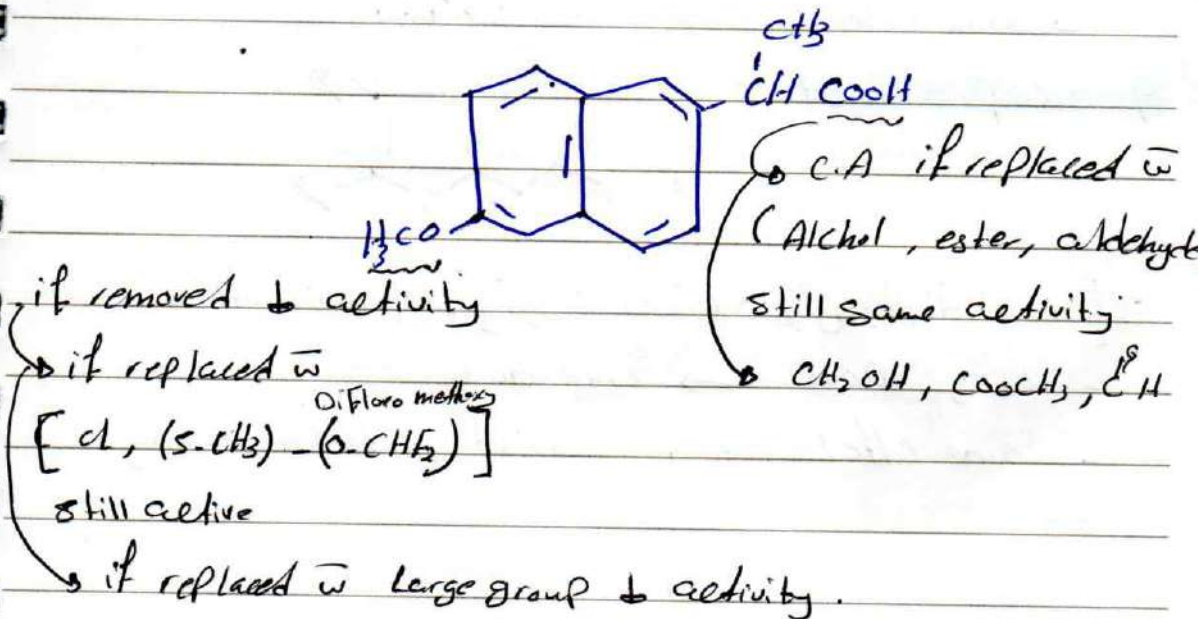 CH3
CH COOH
C.A if replaced w̅
(Alchol, ester, aldehyde
still same activity
CH2OH, COOCH3, C̈H
H3CO
if removed ↓ activity
if replaced w̅
DiFloro methoxy
[Cl, (S-CH3) - (O-CHF2)]
still active
if replaced w̅ Large group ↓ activity.